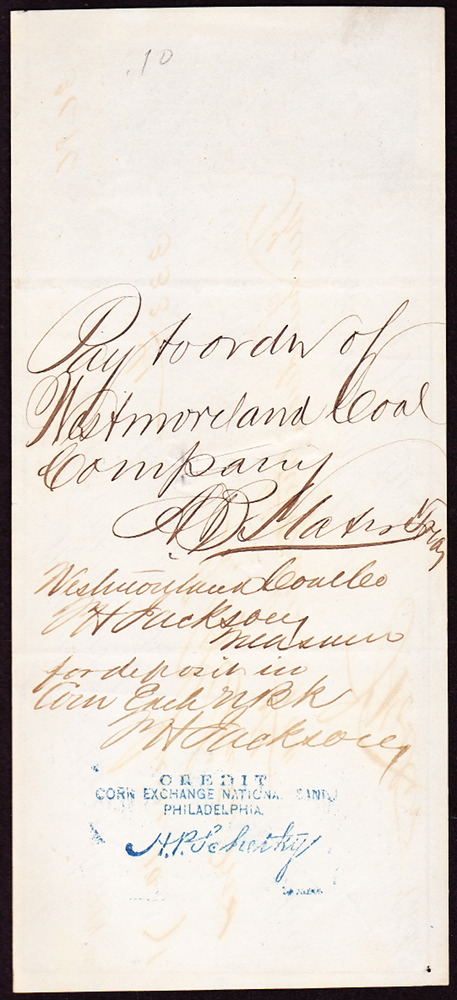 .10
Pay to order of
Westmoreland Coal
Company
A.D.
Westmoreland Coal Co
H Jackson
Treasurer
for deposit in
Corn Exch N Bk
H Jackson
CREDIT
CORN EXCHANGE NATIONAL BANK
PHILADELPHIA.
H.P. Schetky